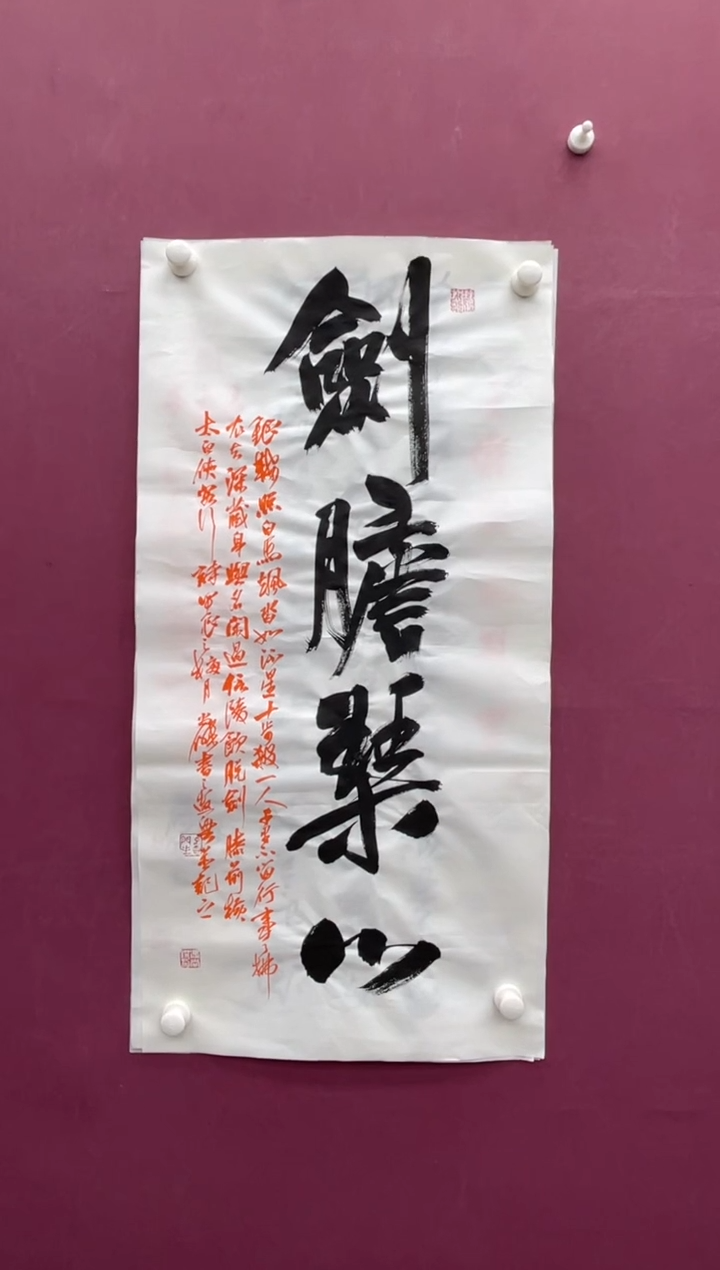 劍膽琴心
銀鞍照白馬颯沓如流星十步殺一人千里不留行事了拂
衣去深藏身與名閑過信陵飲脫劍膝前橫
太白俠客行詩 之 月 書